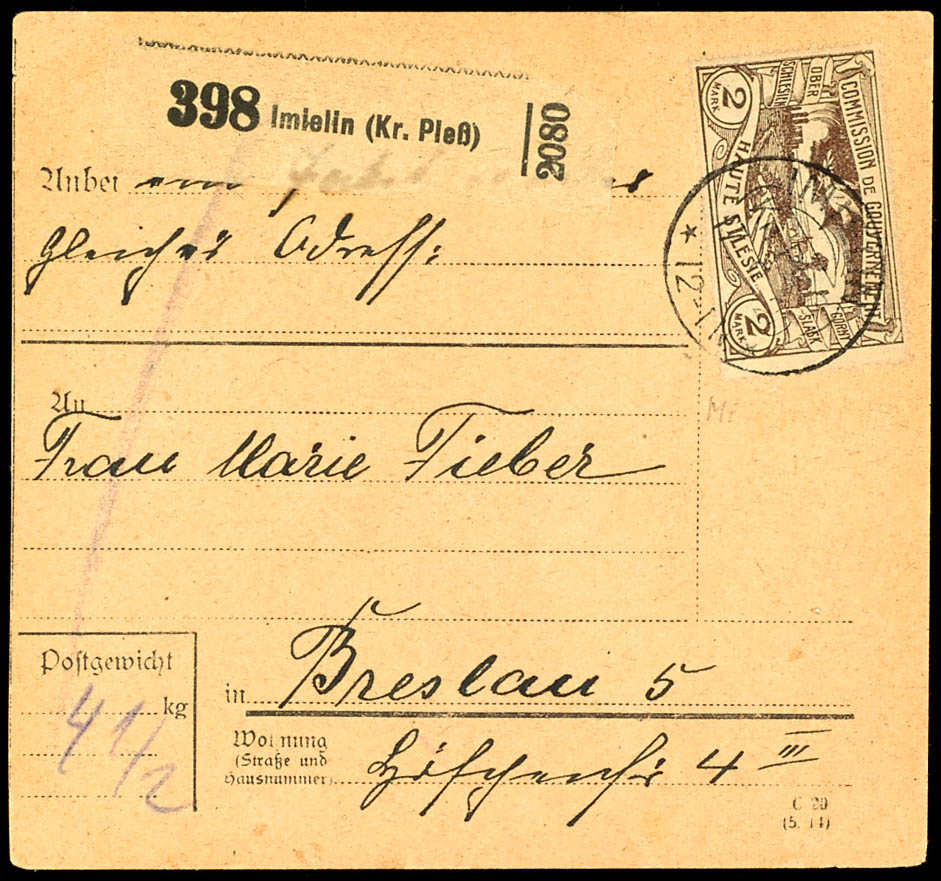 398 Imielin (Kr. Pleß)
2080
Anbei ein
gleicher Adress:
2 MARK
OBER SCHLESIEN
COMMISSION DE GOUVERNEMENT
HAUTE SILESIE
GORNY SLASK
2 MARK
* 12
An
Frau Marie Fieber
Postgewicht
4 1/2 kg
in Breslau 5
Wohnung
(Straße und
Hausnummer)
4 III
C 20
(5. 14)